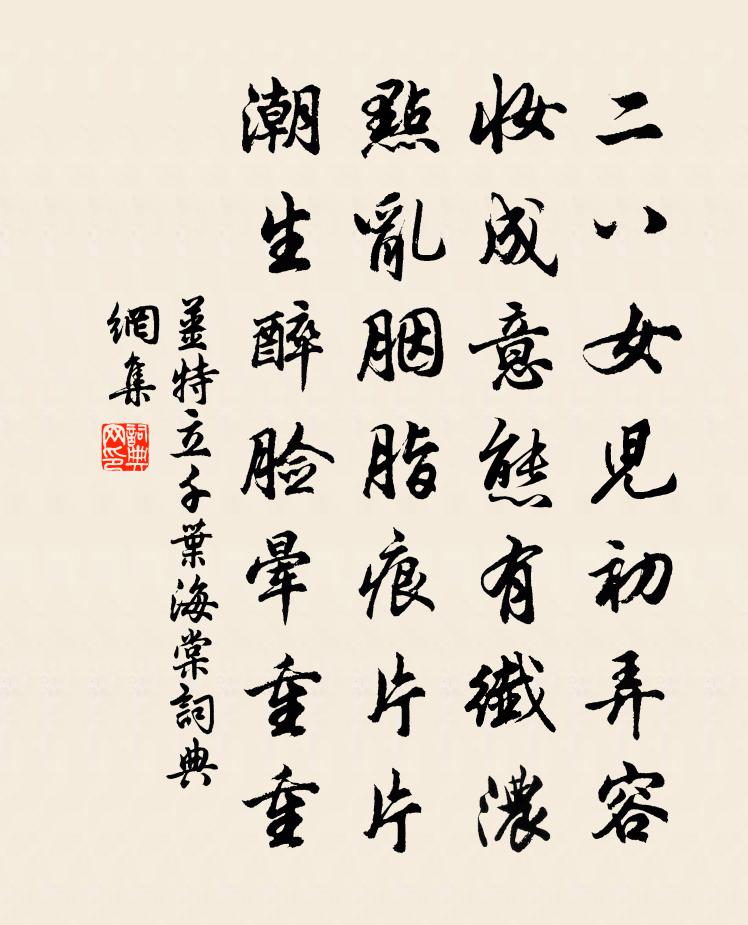 二八女児初弄容
妝成意態有纖濃
點亂胭脂痕片片
潮生醉臉暈重重
薑特立千葉海棠詞典
網集
詞典
网印